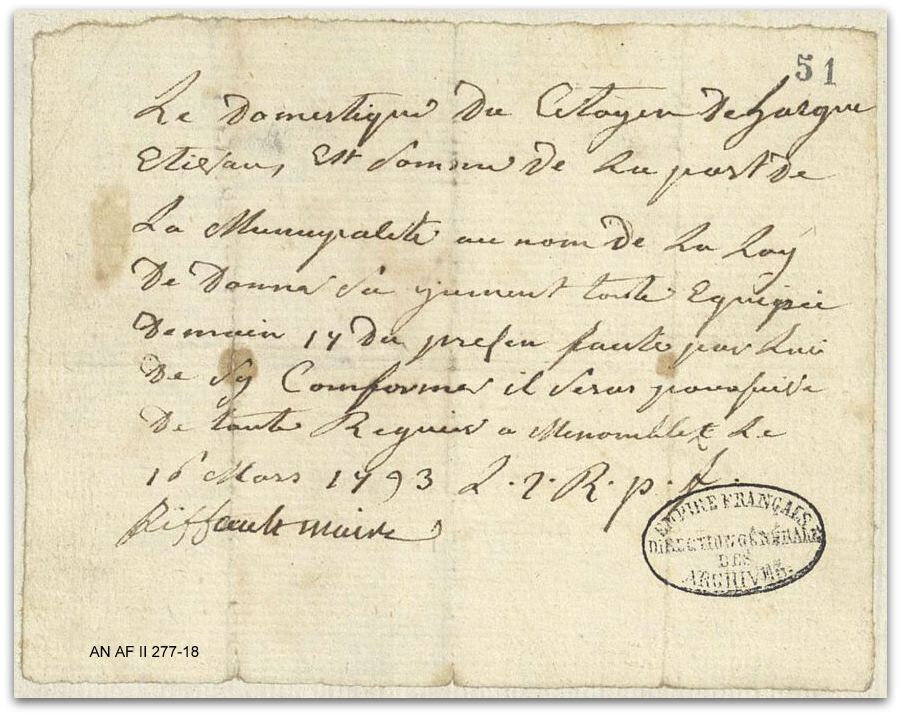 51
Le domestique du Citoyen de hargue
Est sommé de La part de
La Municipalité au nom de La Loy
De Donné Sa jument toute Equipée
Demain 17 du presen faute par Lui
De Sy Comformer il Seras poursuive
De toute Requies a Menomblet Le
16 Mars 1793 L. 2. R. p. f.
Riffault maire
EMPIRE FRANÇAIS
DIRECTION GÉNÉRALE
DES
ARCHIVES.
AN AF II 277-18